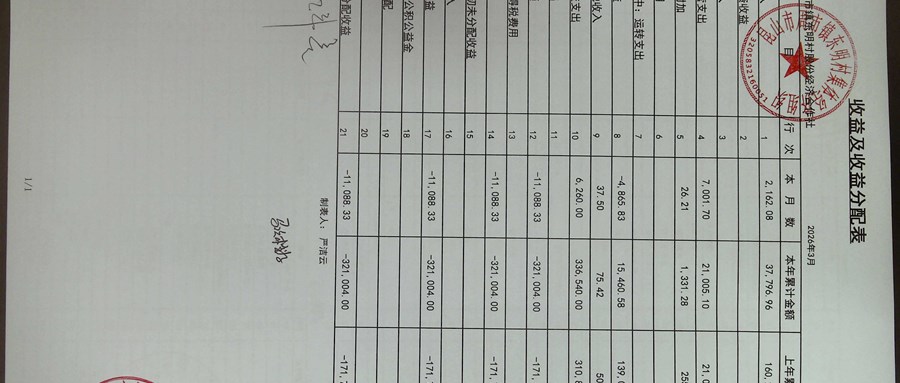 收益及收益分配表
2026年3月
市镇东明村股份经济合作社
3205832160051
目 行次 本月数 本年累计金额 上年累
1 2,162.08 37,796.96 160,
资收益 2
入 3
支出 4 7,001.70 21,005.10 21,0
附加 5 26.21 1,331.28 25
6
中：运转支出 7
8 -4,865.83 15,460.58 139,0
收入 9 37.50 75.42 50
支出 10 6,260.00 336,540.00 310,8
11
益 12 -11,088.33 -321,004.00 -171,
得税费用 13
14 -11,088.33 -321,004.00 -171,
初未分配收益 15
入 16
益 17 -11,088.33 -321,004.00 -171,
公积公益金 18
配 19
20
分配收益 21 -11,088.33 -321,004.00 -171,
制表人：严洁云
1/1